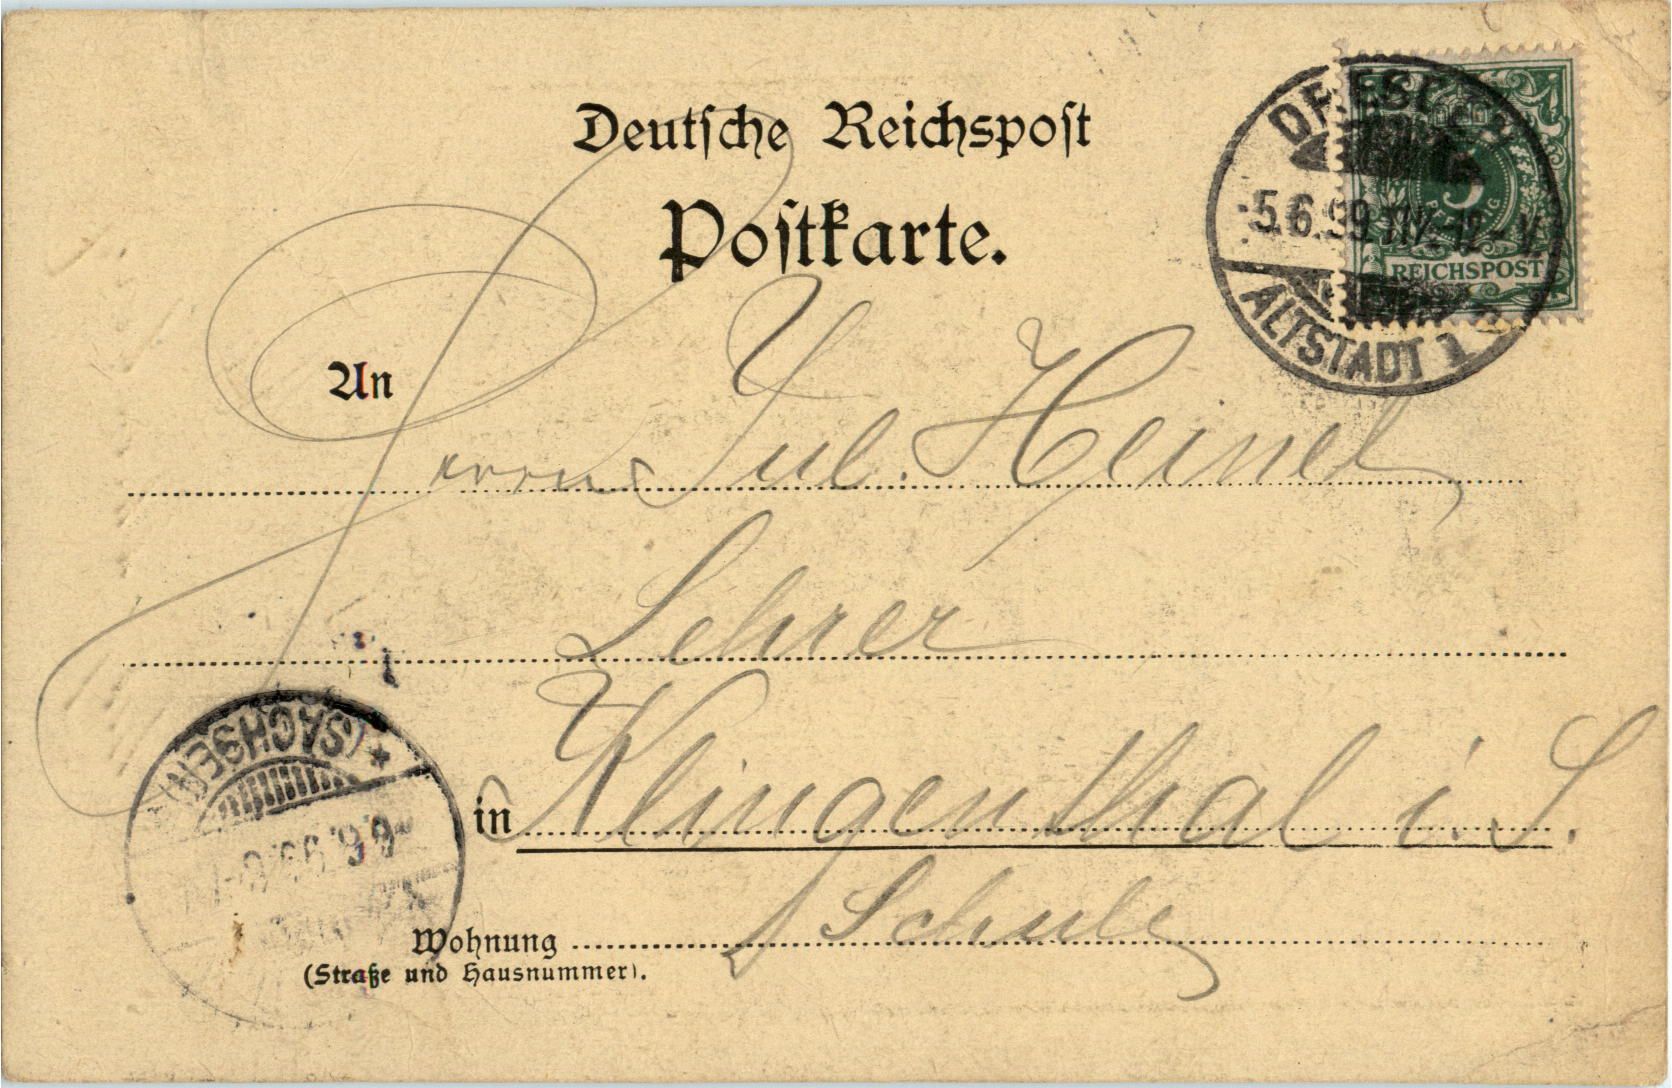 Deutsche Reichspost
Postkarte.
DRESDEN
5.6.99.11V.-12-V.
ALTSTADT 1
5
PFENNIG
REICHSPOST
An
Herrn Jul. Heinel
Lehrer
in Klingenthal i. S.
Schule
Wohnung
(Straße und Hausnummer).
(SACHSEN) *
6.6.99